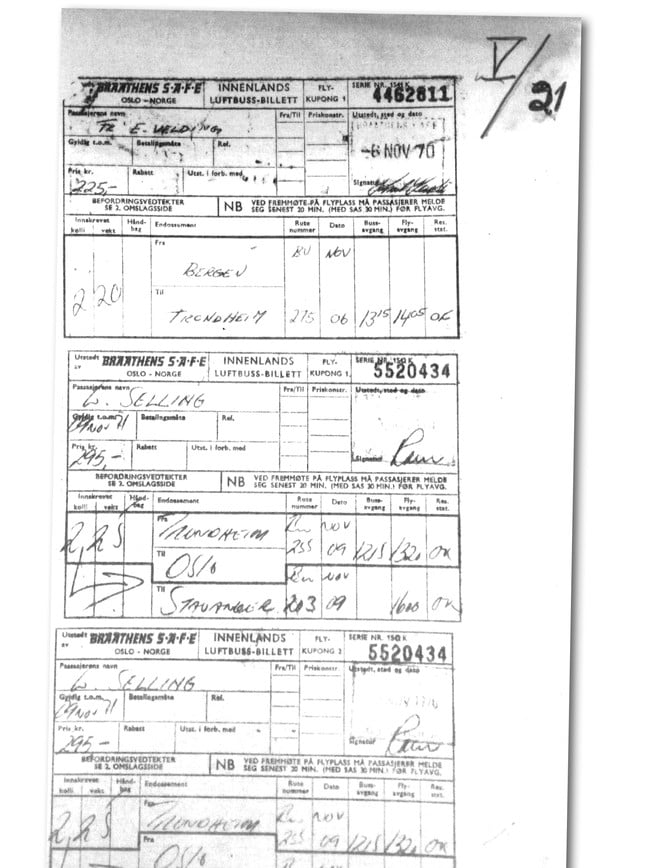 V/21
BRAATHENS S·A·F·E INNENLANDS FLY- SERIE NR. 150 K
OSLO - NORGE LUFTBUSS-BILLETT KUPONG 1 4462811
Passasjerens navn Fra/Til Priskonstr. Utstedt, sted og dato
FR. E. VELDING
Gyldig t.o.m. Betalingsmåte Rel. -6 NOV 70
Pris kr. Rabatt Utst. i forb. med Signatur
225,-
BEFORDRINGSVEDTEKTER NB VED FREMMØTE PÅ FLYPLASS MÅ PASSASJERER MELDE
SE 2. OMSLAGSSIDE SEG SENEST 20 MIN. (MED SAS 30 MIN.) FØR FLYAVG.
Innskrevet Hånd- Endossement Rute Dato Buss- Fly- Res.
kolli vekt bag nummer avgang avgang stat.
Fra BU NOV
BERGEN
2 20 Til
TRONDHEIM 275 06 13 15 14 05 OK
Utstedt BRAATHENS S·A·F·E INNENLANDS FLY- SERIE NR. 150 K
av OSLO - NORGE LUFTBUSS-BILLETT KUPONG 1 5520434
Passasjerens navn Fra/Til Priskonstr. Utstedt, sted og dato
L. SELLING
Gyldig t.o.m. Betalingsmåte Rel.
09 NOV 71
Pris kr. Rabatt Utst. i forb. med Signatur
295,-
BEFORDRINGSVEDTEKTER NB VED FREMMØTE PÅ FLYPLASS MÅ PASSASJERER MELDE
SE 2. OMSLAGSSIDE SEG SENEST 20 MIN. (MED SAS 30 MIN.) FØR FLYAVG.
Innskrevet Hånd- Endossement Rute Dato Buss- Fly- Res.
kolli vekt bag nummer avgang avgang stat.
Fra NOV
2, 25 TRONDHEIM 255 09 1215 1320 OK
Til OSLO NOV
Til
STAVANGER 203 09 1600 OK
Utstedt BRAATHENS S·A·F·E INNENLANDS FLY- SERIE NR. 150 K
av OSLO - NORGE LUFTBUSS-BILLETT KUPONG 2 5520434
Passasjerens navn Fra/Til Priskonstr. Utstedt, sted og dato
L. SELLING
Gyldig t.o.m. Betalingsmåte Rel.
09 NOV 71
Pris kr. Rabatt Utst. i forb. med Signatur
295,-
BEFORDRINGSVEDTEKTER NB VED FREMMØTE PÅ FLYPLASS MÅ PASSASJERER MELDE
SE 2. OMSLAGSSIDE SEG SENEST 20 MIN. (MED SAS 30 MIN.) FØR FLYAVG.
Innskrevet Hånd- Endossement Rute Dato Buss- Fly- Res.
kolli vekt bag nummer avgang avgang stat.
Fra NOV
2, 25 TRONDHEIM 255 09 1215 1320 OK
Fra OSLO NOV